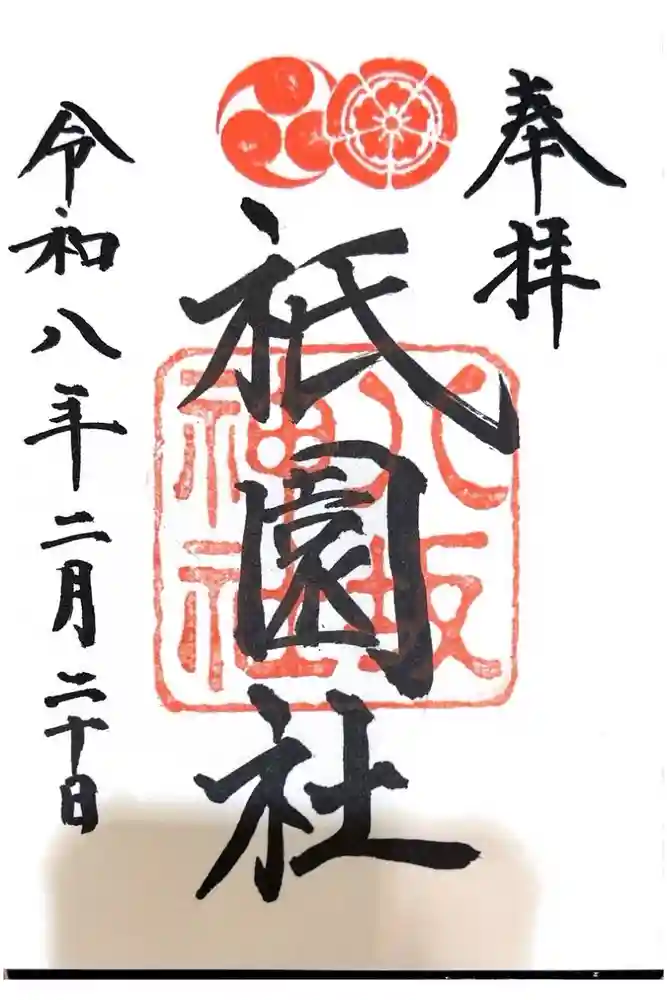 奉拝
祇園社
八坂
神社
令和八年二月二十日